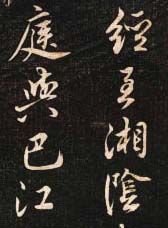 經至湘陰
庭與巴江